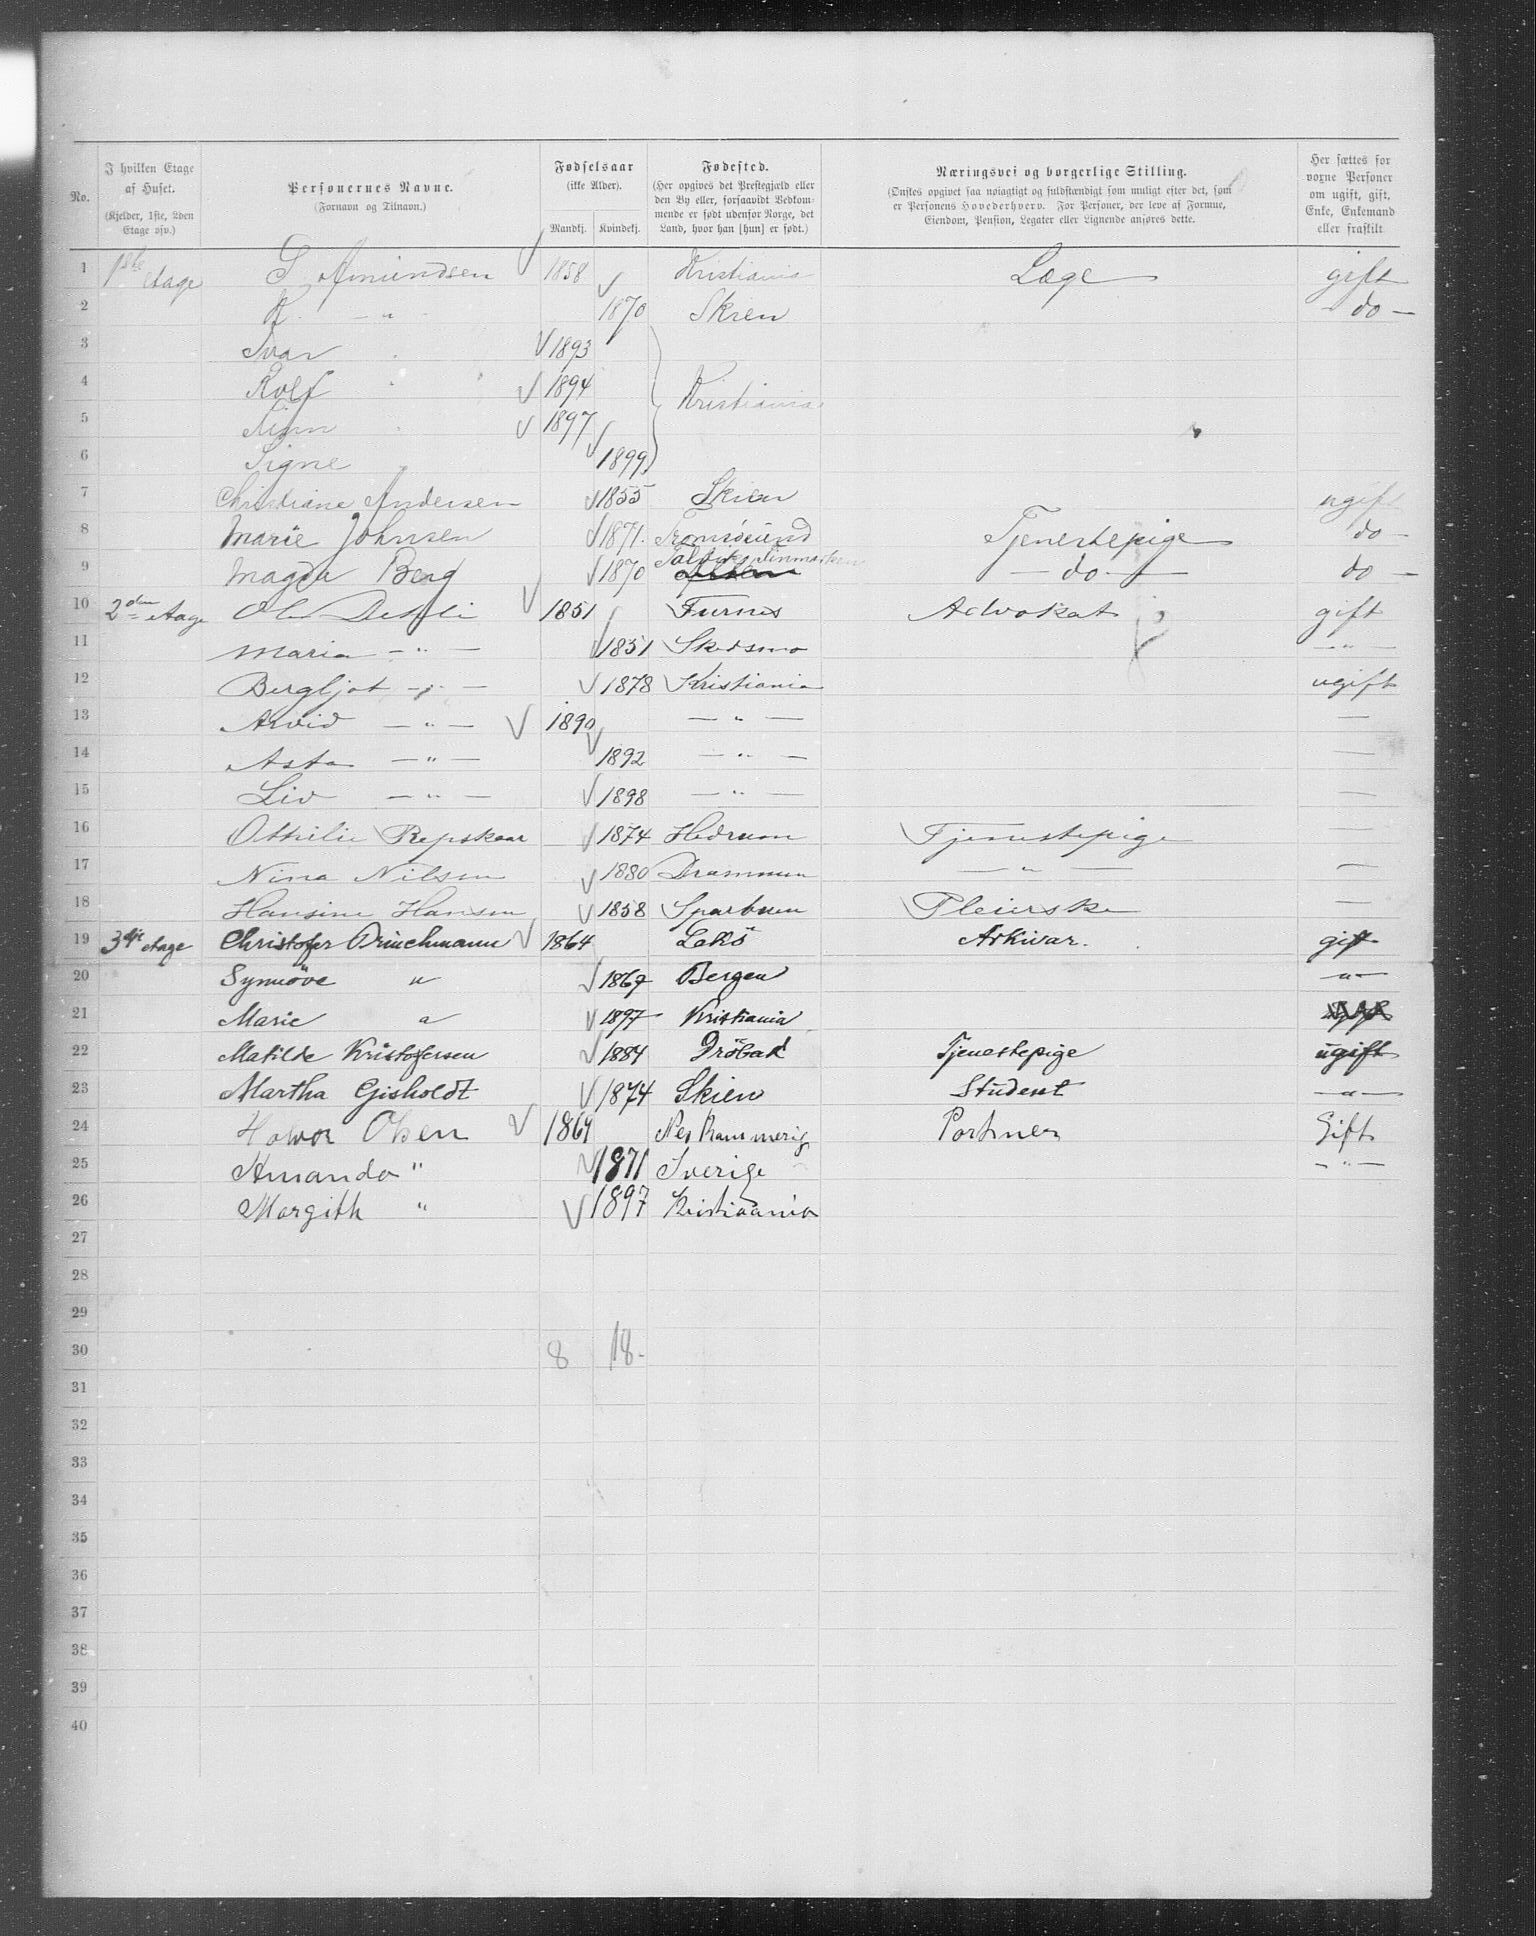 No. I hvilken Etage af Huset. (Kjelder, 1ste, 2den Etage osv.) Personernes Navne. (Fornavn og Tilnavn.) Fødselsaar (ikke Alder). Mandkj. Kvindekj. Fødested. (Her opgives det Prestegjæld eller den By eller, forsaavidt Vedkommende er født udenfor Norge, det Land, hvor han [hun] er født.) Næringsvei og borgerlige Stilling. (Ønskes opgivet saa nøiagtigt og fuldstændigt som muligt efter det, som er Personens Hovederhverv. For Personer, der leve af Formue, Eiendom, Pension, Legater eller Lignende anføres dette. Her sættes for voxne Personer om ugift, gift, Enke, Enkemand eller fraskilt
1 1ste etage S. Amundsen 1858 Kristiania Læge gift
2 K. — " — 1870 Skien do —
3 Ivar " 1893
4 Rolf " 1894 Kristiania
5 Finn " 1897
6 Signe " 1899
7 Christiane Andersen 1855 Skien ugift
8 Marie Johnsen 1871 Tromsøsund Tjenestepige do —
9 Magda Berg 1870 Talvik Finmarken — do — do —
10 2den Etage Ole Dehli 1851 Furnes Advokat gift
11 Maria — " — 1851 Skedsmo — " —
12 Bergljot — " — 1878 Kristiania ugift
13 Arvid — " — 1890 — " — —
14 Asta — " — 1892 — " — —
15 Liv — " — 1898 — " — —
16 Othilie Repskaar 1874 Hedrum Tjenestepige —
17 Nina Nilsen 1880 Drammen — " — —
18 Hansine Hansen 1858 Sparbuen Pleierske —
19 3dje etage Christofer Brinchmann 1864 Lekö Arkivar. gift
20 Synnöve " 1867 Bergen — " —
21 Marie " 1897 Kristiania
22 Matilde Kristofersen 1884 Dröbak Tjenestepige ugift
23 Martha Gisholdt 1874 Skien Student — " —
24 Halvor Olsen 1869 Nes Romerig Portner Gift
25 Amanda " 1871 Sverige — " —
26 Margith " 1897 Kristiaania
27
28
29
30 8 18.
31
32
33
34
35
36
37
38
39
40